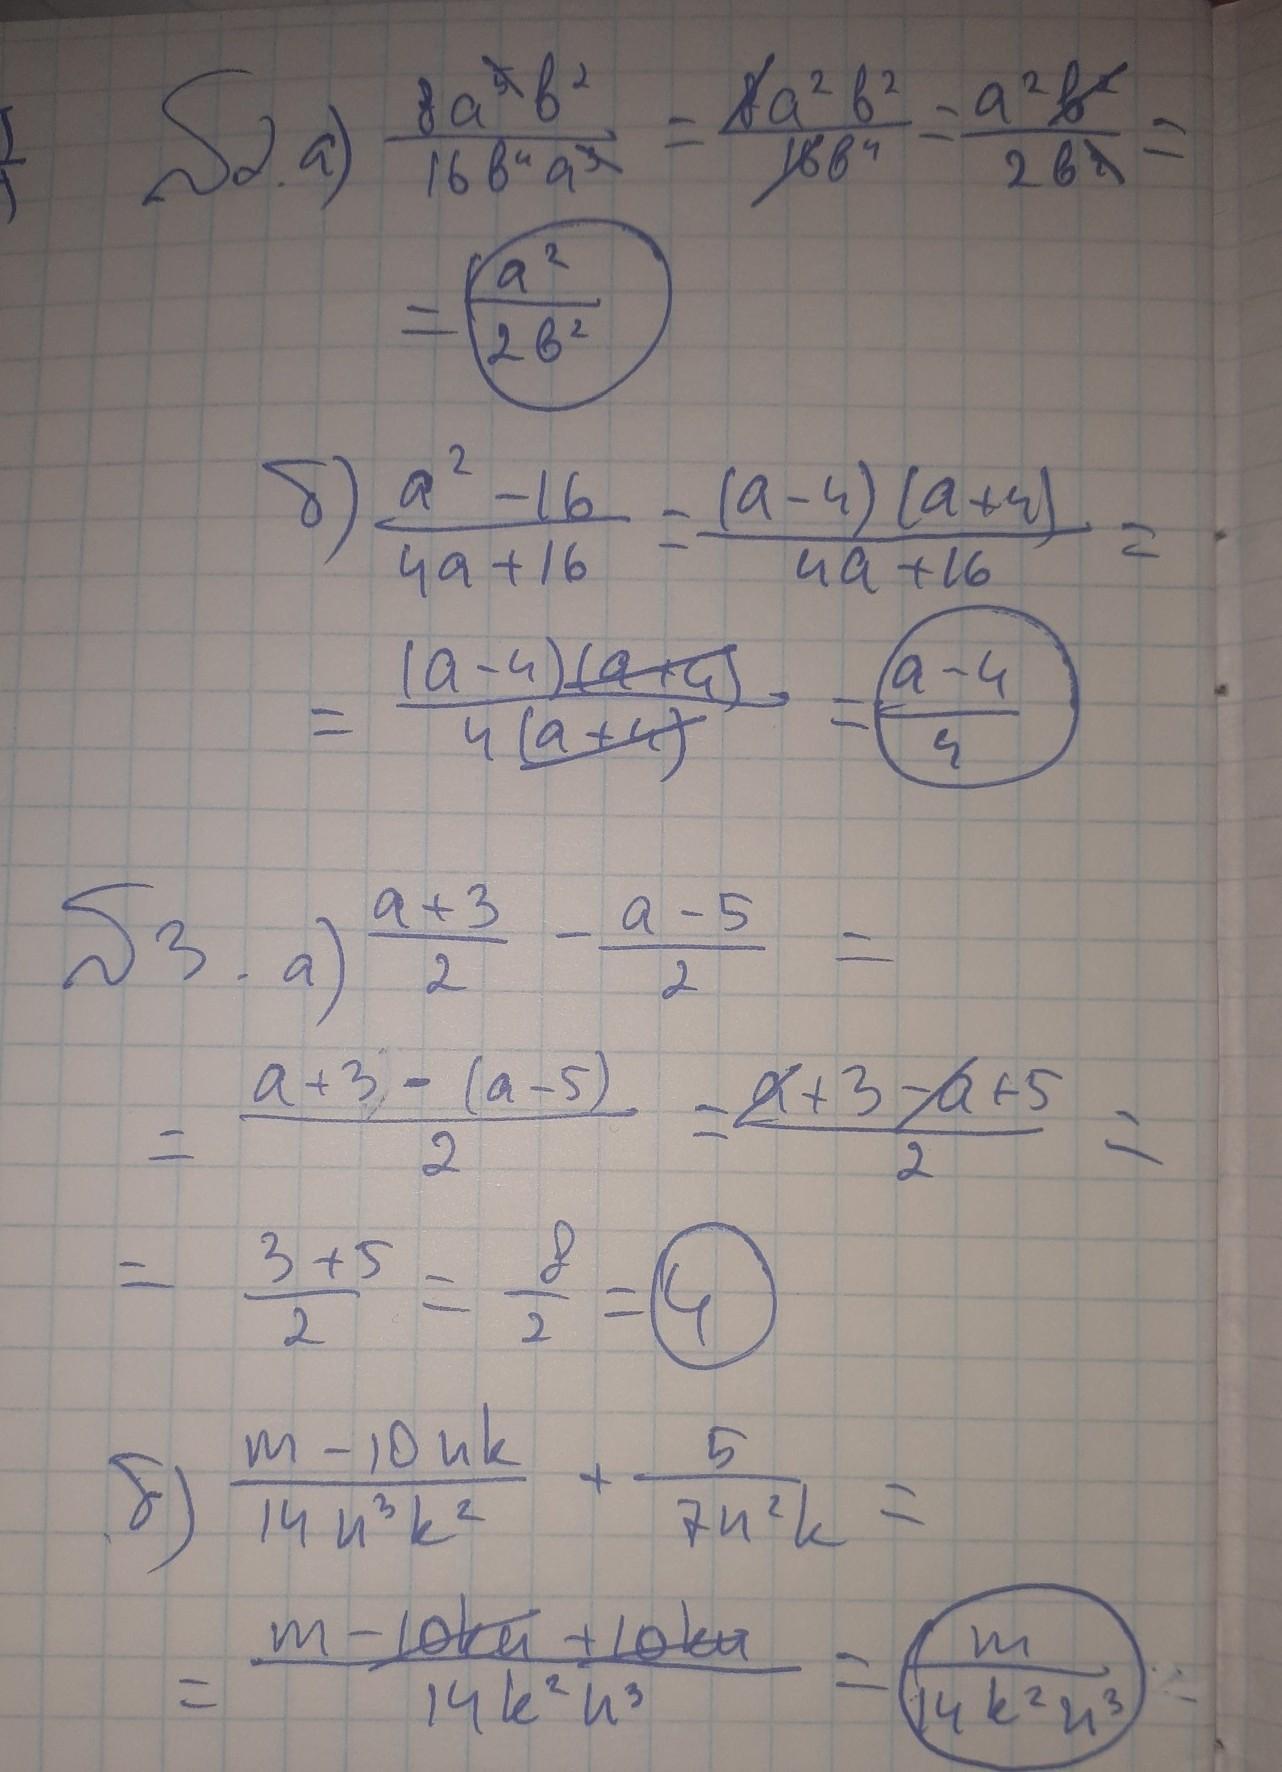 №2. а) 8a⁵b²/16b⁴a³ = 8a²b²/16b⁴ = a²b²/2b⁴ =
= a²/2b²
б) a²-16/4a+16 = (a-4)(a+4)/4a+16 =
= (a-4)(a+4)/4(a+4) = a-4/4
№3. а) a+3/2 - a-5/2 =
= a+3-(a-5)/2 = a+3-a+5/2 =
= 3+5/2 = 8/2 = 4
б) m-10nk/14n³k² + 5/7n²k =
= m-10kn+10kn/14k²n³ = m/14k²n³